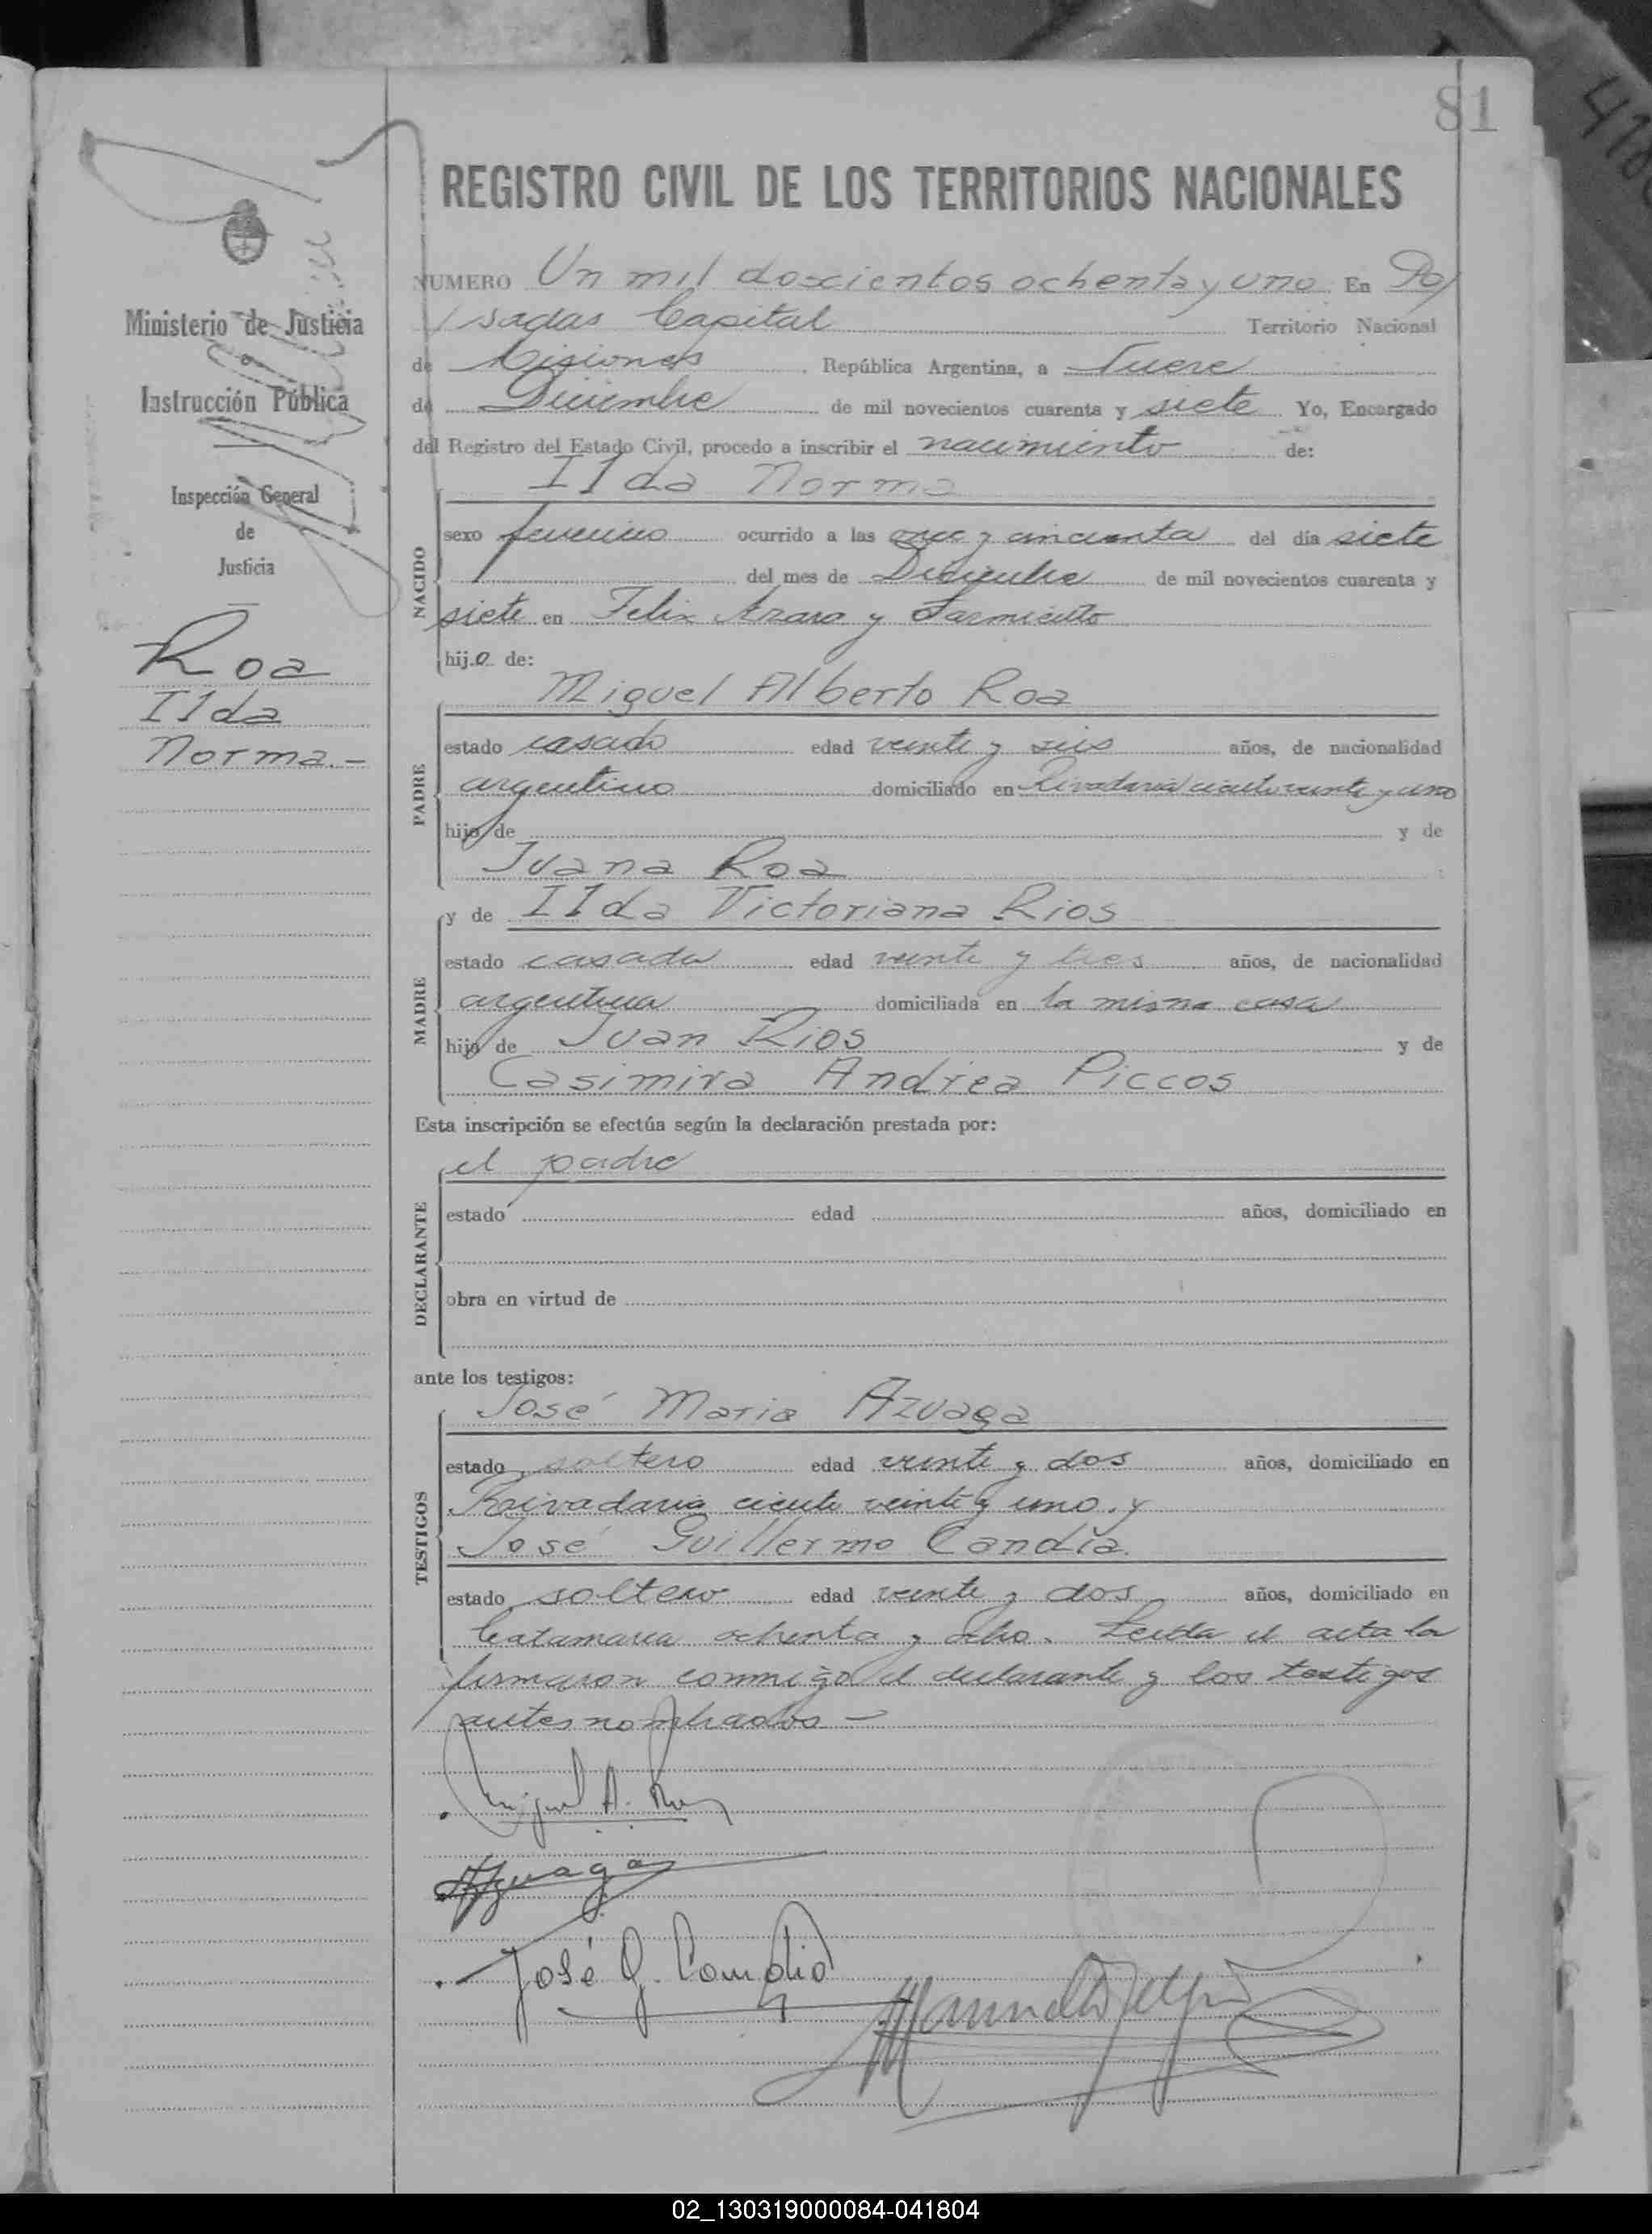 81
REGISTRO CIVIL DE LOS TERRITORIOS NACIONALES
NUMERO Un mil doscientos ochenta y uno. En Po/
/sadas Capital Territorio Nacional
de Misiones República Argentina, a nueve
de Diciembre de mil novecientos cuarenta y siete Yo, Encargado
del Registro del Estado Civil, procedo a inscribir el nacimiento de:
Ministerio de Justicia
e
Instrucción Pública
Inspección General
de
Justicia
Roa
Ilda
Norma.-
NACIDO
Ilda Norma
sexo femenino ocurrido a las y cincuenta del día siete
del mes de Diciembre de mil novecientos cuarenta y
siete en Felix Azara y Sarmiento
hija de:
PADRE
Miguel Alberto Roa
estado casado edad veinte y seis años, de nacionalidad
argentino domiciliado en Rivadavia ciento veinte y uno
hijo de y de
Juana Roa
MADRE
y de Ilda Victoriana Rios
estado casada edad veinte y tres años, de nacionalidad
argentina domiciliada en la misma casa
hija de Juan Rios y de
Casimira Andrea Piccos
Esta inscripción se efectúa según la declaración prestada por:
DECLARANTE
el padre
estado edad años, domiciliado en
obra en virtud de
ante los testigos:
TESTIGOS
José Maria Azuaga
estado soltero edad veinte y dos años, domiciliado en
Raivadavia ciento veinte y uno. y
José Guillermo Candia.
estado soltero edad veinte y dos años, domiciliado en
Catamarca ochenta y ocho. Leida el acta la
firmaron conmigo el declarante y los testigos
antes nombrados -
Miguel A. Roa
Azuaga
José G. Candia
02_130319000084-041804